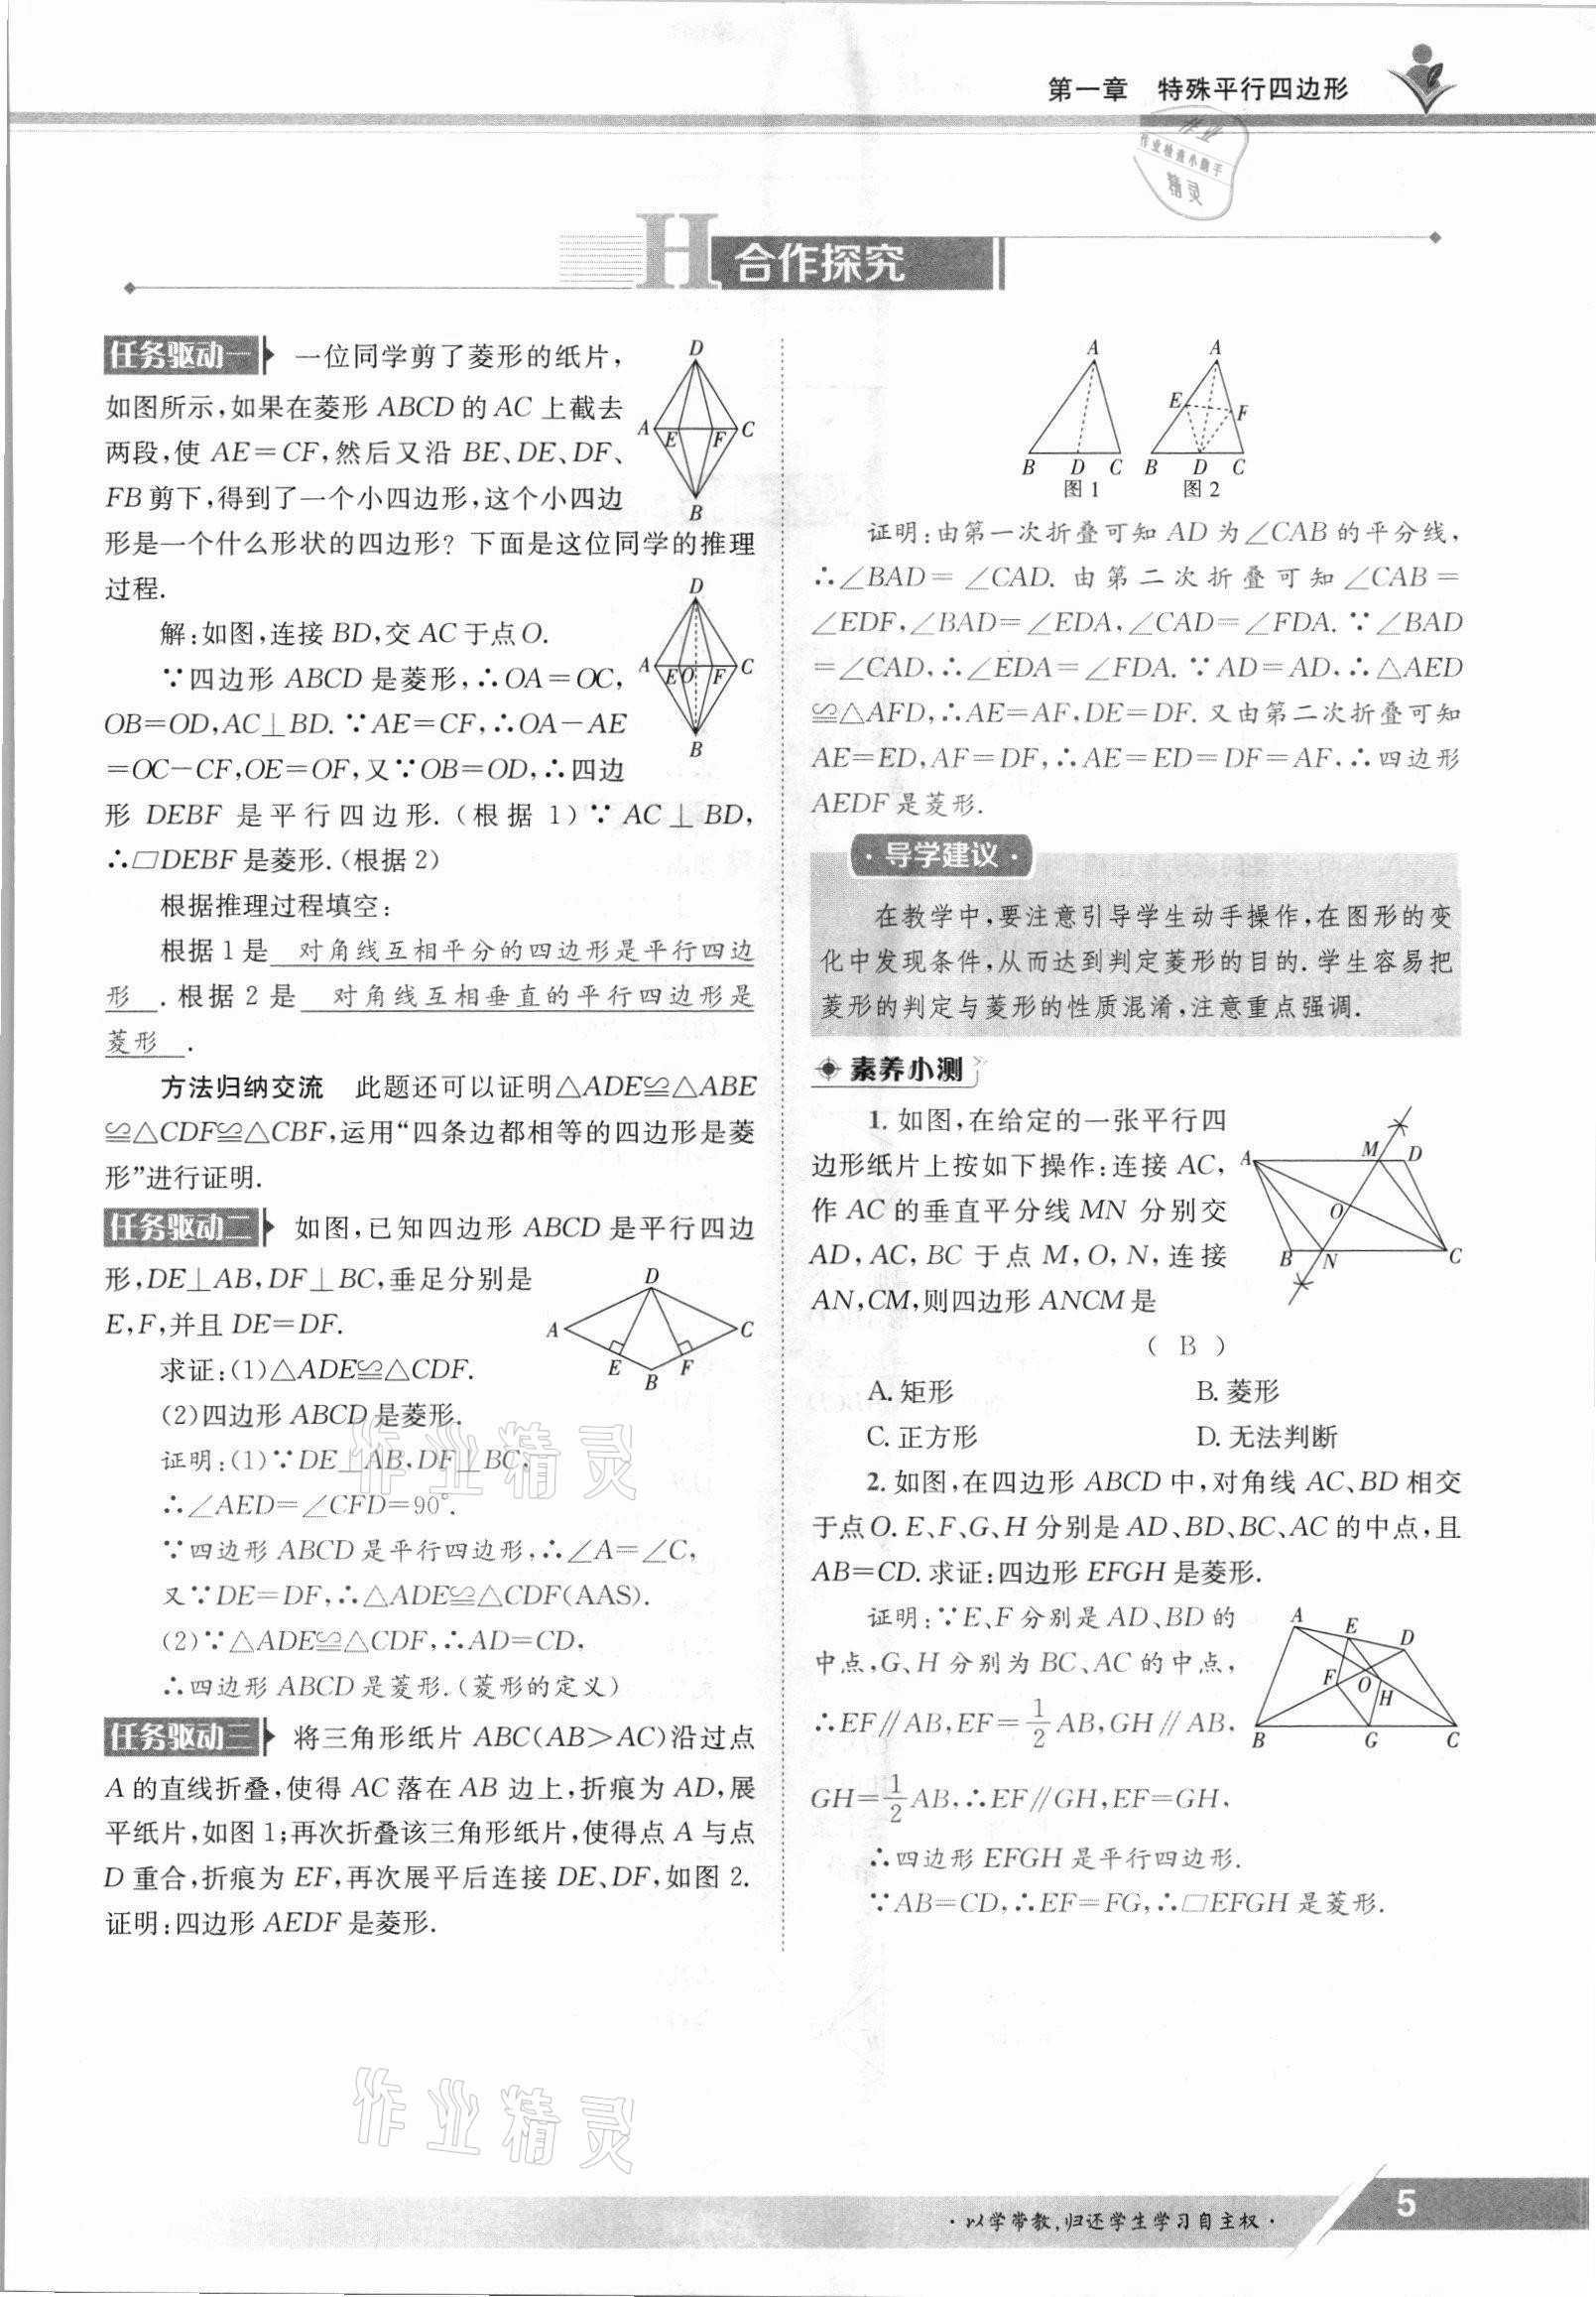 第一章　特殊平行四边形
作业
作业检查小助手
精灵
H 合作探究
任务驱动一 一位同学剪了菱形的纸片，
如图所示,如果在菱形 ABCD 的 AC 上截去
两段,使 AE=CF,然后又沿 BE、DE、DF、
FB 剪下,得到了一个小四边形,这个小四边
形是一个什么形状的四边形? 下面是这位同学的推理
过程.
D
A E F C
B
解:如图,连接 BD,交 AC 于点 O.
∵四边形 ABCD 是菱形,∴OA=OC,
OB=OD,AC⊥BD.∵AE=CF,∴OA-AE
=OC-CF,OE=OF,又∵OB=OD,∴四边
形 DEBF 是平行四边形.(根据 1)∵AC⊥BD,
∴▱DEBF 是菱形.(根据 2)
D
A E O F C
B
根据推理过程填空:
根据 1 是 对角线互相平分的四边形是平行四边
形 .根据 2 是 对角线互相垂直的平行四边形是
菱形 .
方法归纳交流　此题还可以证明△ADE≌△ABE
≌△CDF≌△CBF,运用“四条边都相等的四边形是菱
形”进行证明.
任务驱动二 如图,已知四边形 ABCD 是平行四边
形,DE⊥AB,DF⊥BC,垂足分别是
E,F,并且 DE=DF.
D
A C
E F
B
求证:(1)△ADE≌△CDF.
(2)四边形 ABCD 是菱形.
证明:(1)∵DE⊥AB,DF⊥BC,
∴∠AED=∠CFD=90°.
∵四边形 ABCD 是平行四边形,∴∠A=∠C,
又∵DE=DF,∴△ADE≌△CDF(AAS).
(2)∵△ADE≌△CDF,∴AD=CD,
∴四边形 ABCD 是菱形.(菱形的定义)
任务驱动三 将三角形纸片 ABC(AB>AC)沿过点
A 的直线折叠,使得 AC 落在 AB 边上,折痕为 AD,展
平纸片,如图 1;再次折叠该三角形纸片,使得点 A 与点
D 重合,折痕为 EF,再次展平后连接 DE、DF,如图 2.
证明:四边形 AEDF 是菱形.
A A
E F
B D C B D C
图 1 图 2
证明:由第一次折叠可知 AD 为∠CAB 的平分线,
∴∠BAD=∠CAD. 由第二次折叠可知∠CAB=
∠EDF,∠BAD=∠EDA,∠CAD=∠FDA.∵∠BAD
=∠CAD,∴∠EDA=∠FDA.∵AD=AD,∴△AED
≌△AFD,∴AE=AF,DE=DF.又由第二次折叠可知
AE=ED,AF=DF,∴AE=ED=DF=AF,∴四边形
AEDF 是菱形.
·导学建议·
在教学中,要注意引导学生动手操作,在图形的变
化中发现条件,从而达到判定菱形的目的.学生容易把
菱形的判定与菱形的性质混淆,注意重点强调.
素养小测
1.如图,在给定的一张平行四
边形纸片上按如下操作:连接 AC,
作 AC 的垂直平分线 MN 分别交
AD,AC,BC 于点 M,O,N,连接
AN,CM,则四边形 ANCM 是
( B )
A M D
O
B N C
A.矩形 B.菱形
C.正方形 D.无法判断
2.如图,在四边形 ABCD 中,对角线 AC、BD 相交
于点 O.E、F、G、H 分别是 AD、BD、BC、AC 的中点,且
AB=CD.求证:四边形 EFGH 是菱形.
证明:∵E、F 分别是 AD、BD 的
中点,G、H 分别为 BC、AC 的中点,
∴EF∥AB,EF=1/2 AB,GH∥AB,
A E D
F O H
B G C
GH=1/2 AB,∴EF∥GH,EF=GH,
∴四边形 EFGH 是平行四边形.
∵AB=CD,∴EF=FG,∴▱EFGH 是菱形.
作业精灵
作业精灵
·以学带教,归还学生学习自主权·
5